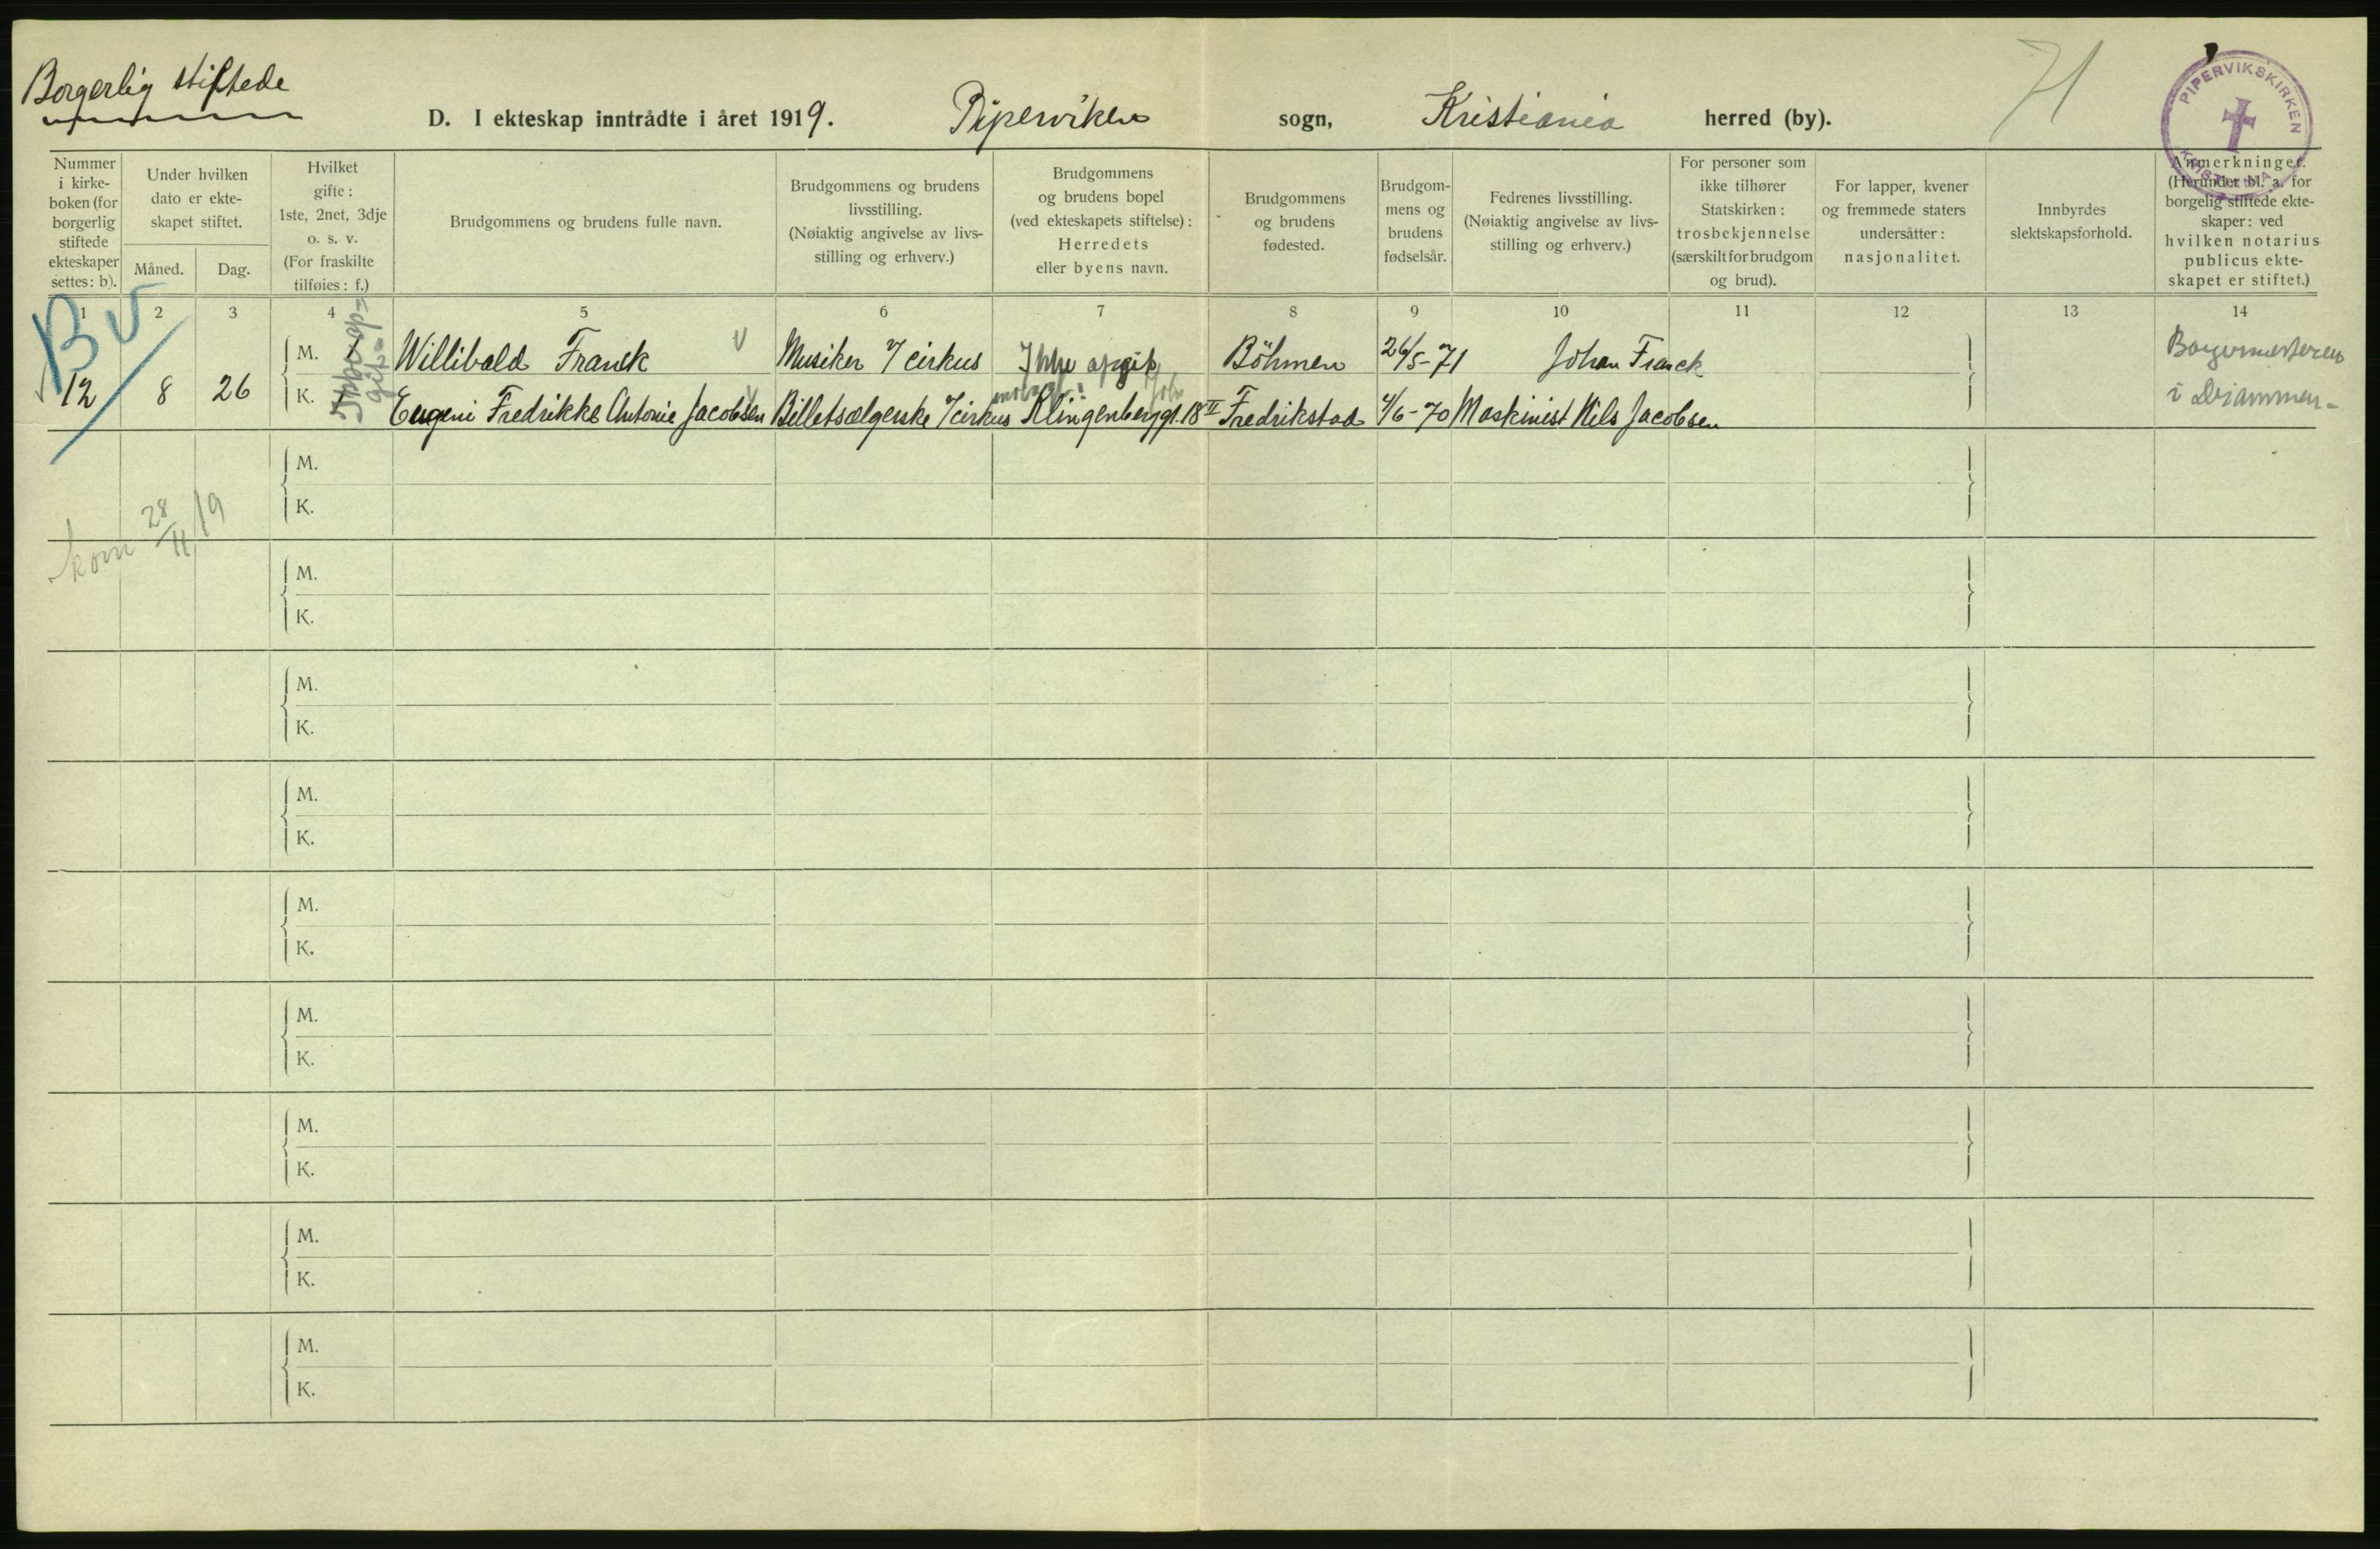 Borgerlig stiftede
D. I ekteskap inntrådte i året 1919. Piperviken sogn, Kristiania herred (by).
PIPERVIKSKIRKEN
Nummer
i kirke-
boken (for
borgerlig
stiftede
ekteskaper
settes: b).
Under hvilken
dato er ekte-
skapet stiftet.
Måned.
Dag.
Hvilket
gifte:
1ste, 2net, 3dje
o. s. v.
(For fraskilte
tilføies: f.)
Brudgommens og brudens fulle navn.
Brudgommens og brudens
livsstilling.
(Nøiaktig angivelse av livs-
stilling og erhverv.)
Brudgommens
og brudens bopel
(ved ekteskapets stiftelse):
Herredets
eller byens navn.
Brudgommens
og brudens
fødested.
Brudgom-
mens og
brudens
fødselsår.
Fedrenes livsstilling.
(Nøiaktig angivelse av livs-
stilling og erhverv.)
For personer som
ikke tilhører
Statskirken:
trosbekjennelse
(særskilt for brudgom
og brud).
For lapper, kvener
og fremmede staters
undersåtter:
nasjonalitet.
Innbyrdes
slektskapsforhold.
Anmerkninger.
(Herunder bl. a. for
borgelig stiftede ekte-
skaper: ved
hvilken notarius
publicus ekte-
skapet er stiftet.)
1 2 3 4 5 6 7 8 9 10 11 12 13 14
Bv
12 8 26
M. Willibald Franck Musiker v/ cirkus Ikke opgit Böhmen 26/5-71 Johan Franck
K. Eugeni Fredrikke Antonie Jacobsen Billetsælgerske v/cirkus Klingenberggt. 18 II Fredrikstad 4/6-70 Maskinist Nils Jacobsen
Borgermesteren
i Drammen-
kom 28/11 19
M.
K.
M.
K.
M.
K.
M.
K.
M.
K.
M.
K.
M.
K.
M.
K.
M.
K.